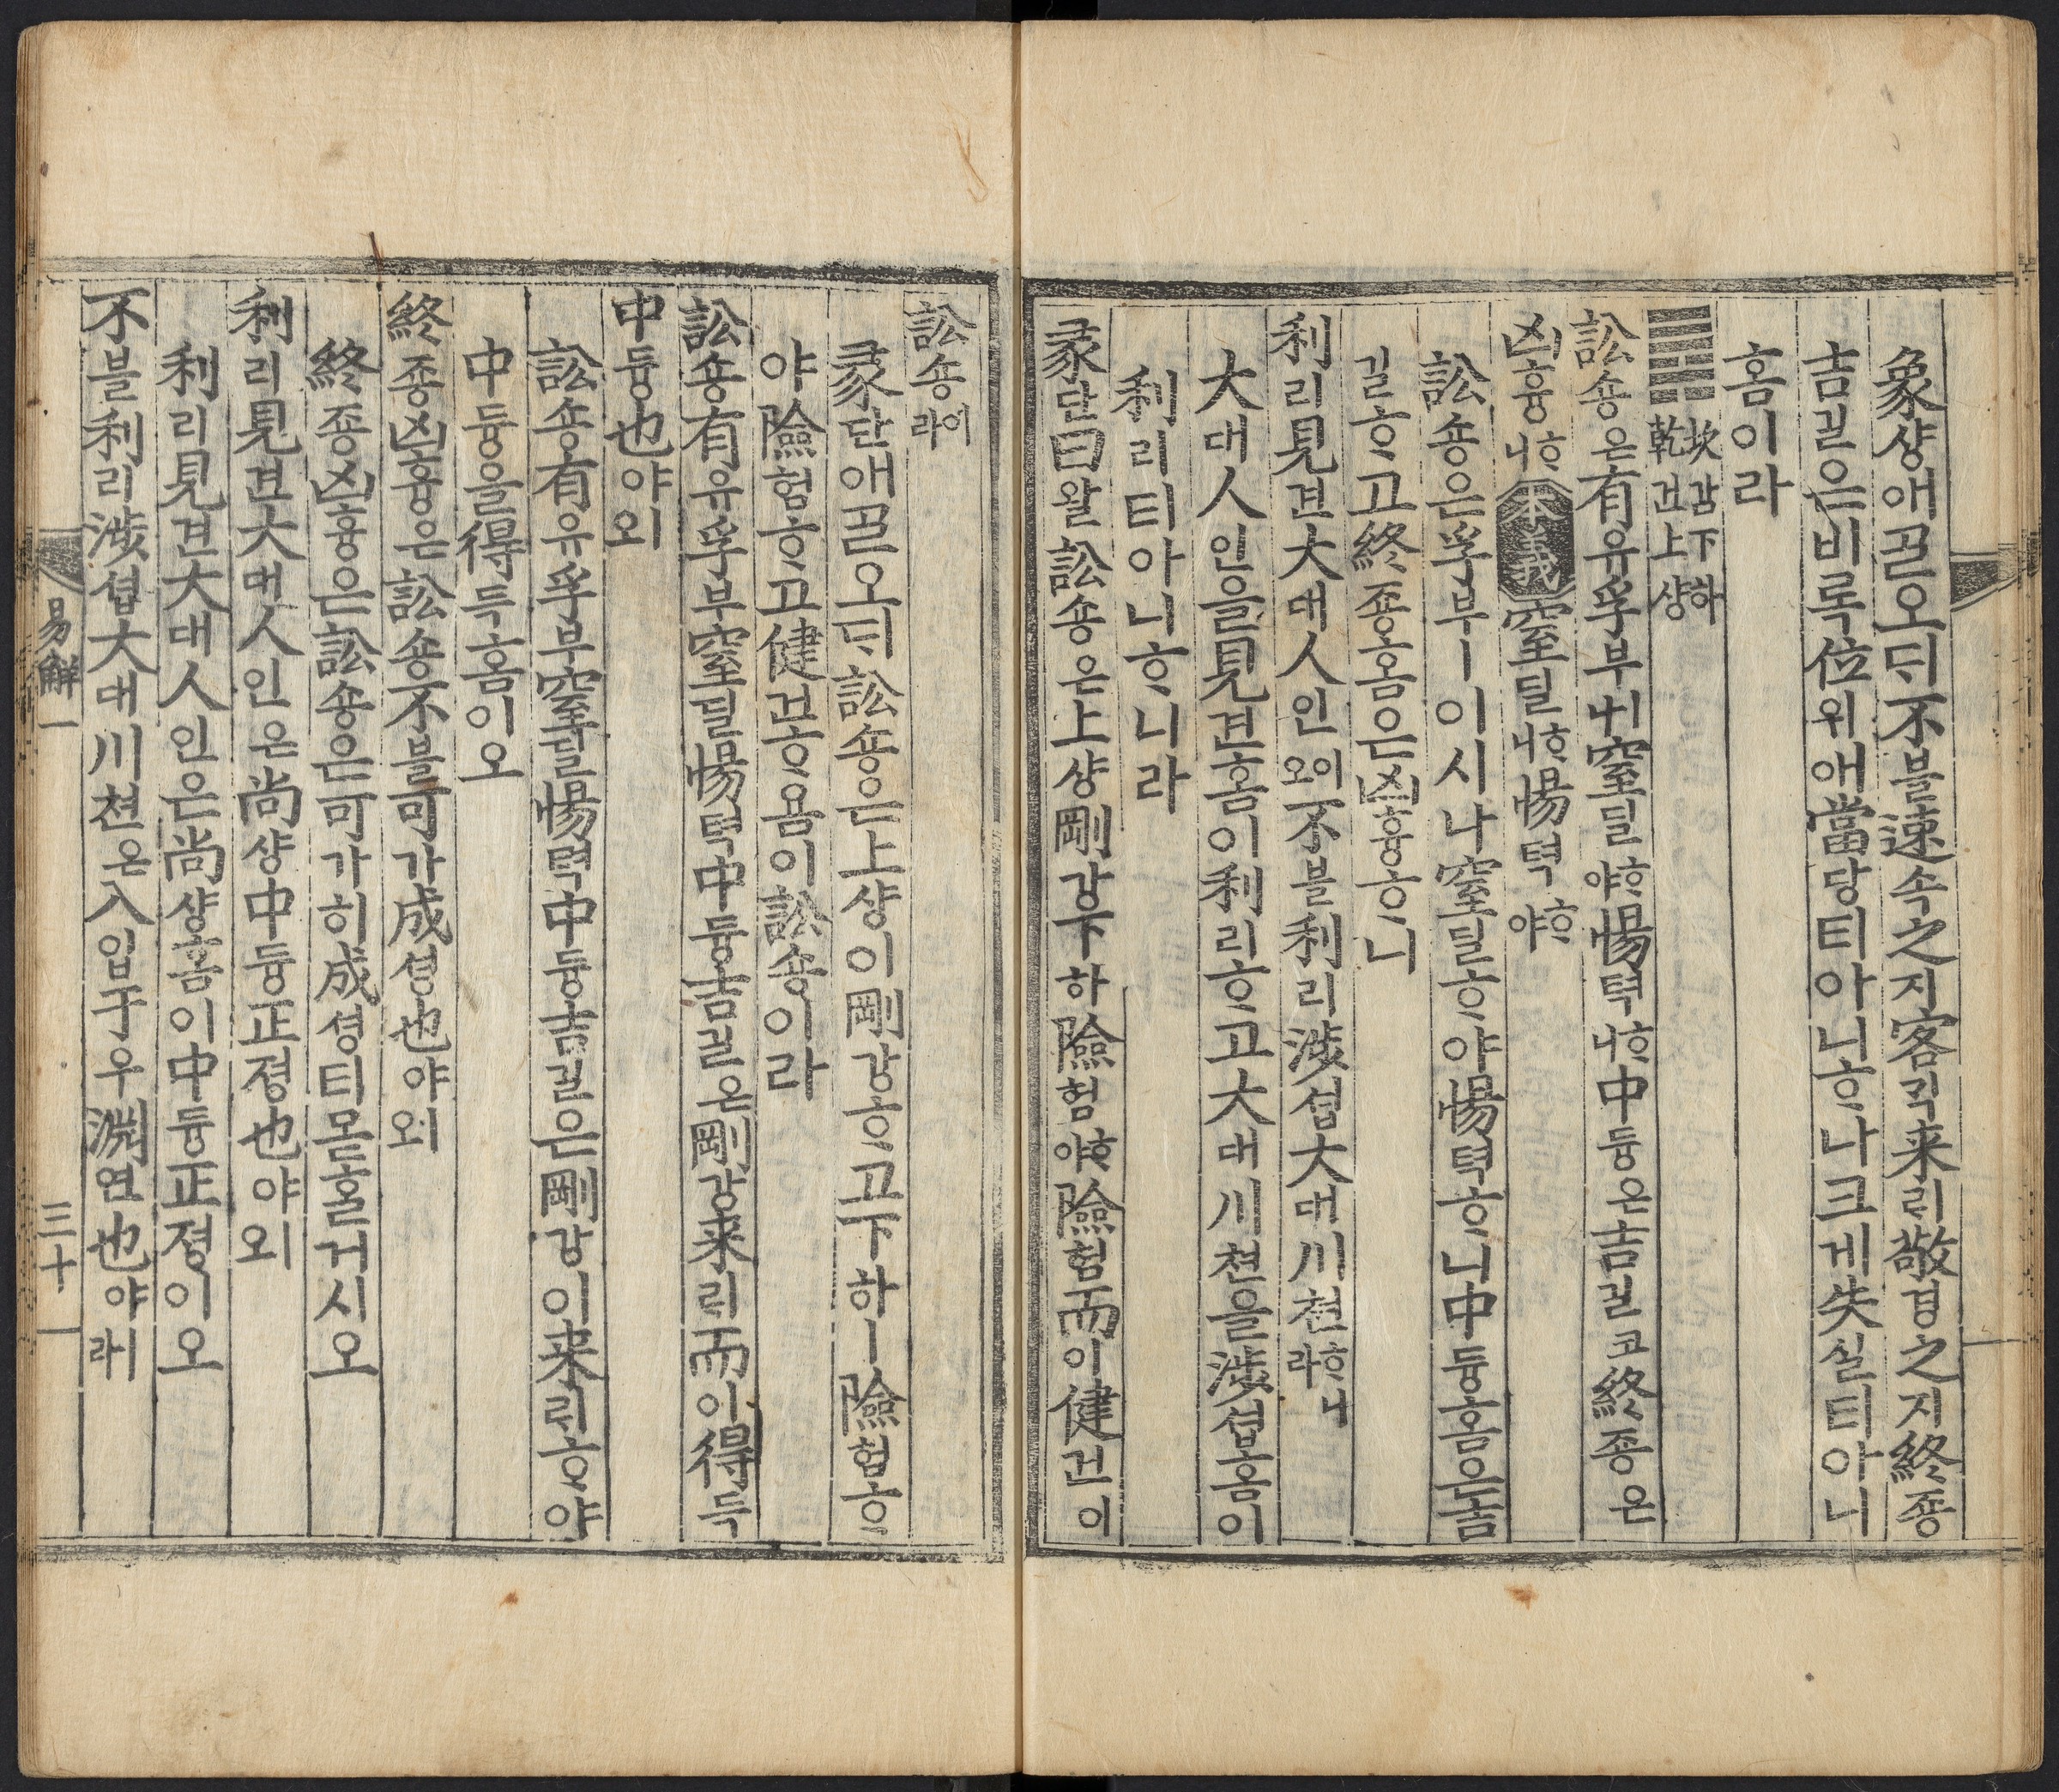 象샹애ᄀᆞᆯ오ᄃᆡ不블速속之지客ᄀᆡᆨ来ᄅᆡ敬경之지終죵
吉길은비록位위애當당티아니ᄒᆞ나크게失실티아니
홈이라
坎감下하乾건上샹
訟숑은有유孚부ㅣ나窒딜ᄒᆞ야惕텩ᄒᆞ니中듕은吉길코終죵은
凶흉ᄒᆞ니 本義 窒딜ᄒᆞ니惕텩ᄒᆞ야
訟숑은孚부ㅣ이시나窒딜ᄒᆞ야惕텩ᄒᆞ니中듕홈은吉
길ᄒᆞ고終죵홈은凶흉ᄒᆞ니
利리見견大대人인이오不블利리涉셥大대川쳔ᄒᆞ니라
大대人인을見견홈이利리ᄒᆞ고大대川쳔을涉셥홈이
利리티아니ᄒᆞ니라
彖단曰왈訟숑은上샹剛강下하險험ᄒᆞ야險험而이健건이
訟숑이라
彖단애ᄀᆞᆯ오ᄃᆡ訟숑은上샹이剛강ᄒᆞ고下하ㅣ險험ᄒᆞ
야險험ᄒᆞ고健건ᄒᆞ욤이訟숑이라
訟숑有유孚부窒딜惕텩中듕吉길은剛강来ᄅᆡ而이得득
中듕也야ㅣ오
訟숑有유孚부窒딜惕텩中듕吉길은剛강이来ᄅᆡᄒᆞ야
中듕을得득홈이오
終죵凶흉은訟숑不블可가成셩也야ㅣ오
終죵凶흉은訟숑은可가히成셩티몯ᄒᆞᆯ거시오
利리見견大대人인은尚샹中듕正졍也야ㅣ오
利리見견大대人인은尚샹홈이中듕正졍이오
不블利리涉셥大대川쳔은入입于우淵연也야ㅣ라
易解一 三十